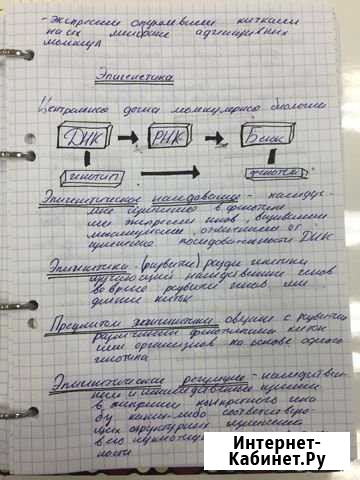 - экспрессия опоров клетками
на их мембране адгезивных
молекул
Эпигенетика
Центральная догма молекулярной биологии
ДНК РНК Белок
генотип фенотип
Эпигенетическое наследование - наследуе-
мые изменения в фенотипе
или экспрессии генов, вызываемые
механизмами, отличными от
изменения последовательности ДНК
Эпигенетика (развития) раздел генетики
изучающий наследование генов
во время развития генов или
деления клетки
Предметом эпигенетики
различными фенотипами клетки
или организмов на основе одного
генотипа
Эпигенетическая регуляция - наследствен-
в экспрессии конкретного гена
без каких-либо соответствую-
щих структурных изменений
в его нуклеотид
ности
Интернет-
Кабинет.Ру